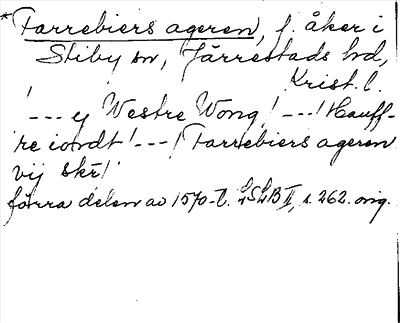 *Farrebiers ageren, f. åker i
Stiby sn, Järrestads hd,
Krist. l.
! --- ej Westre Wong ! --- ! Hauff-
re iordt ! --- ! Farrebiers ageren
vij skr !
förra delen av 1570-t. LSLB II, s. 262. orig.